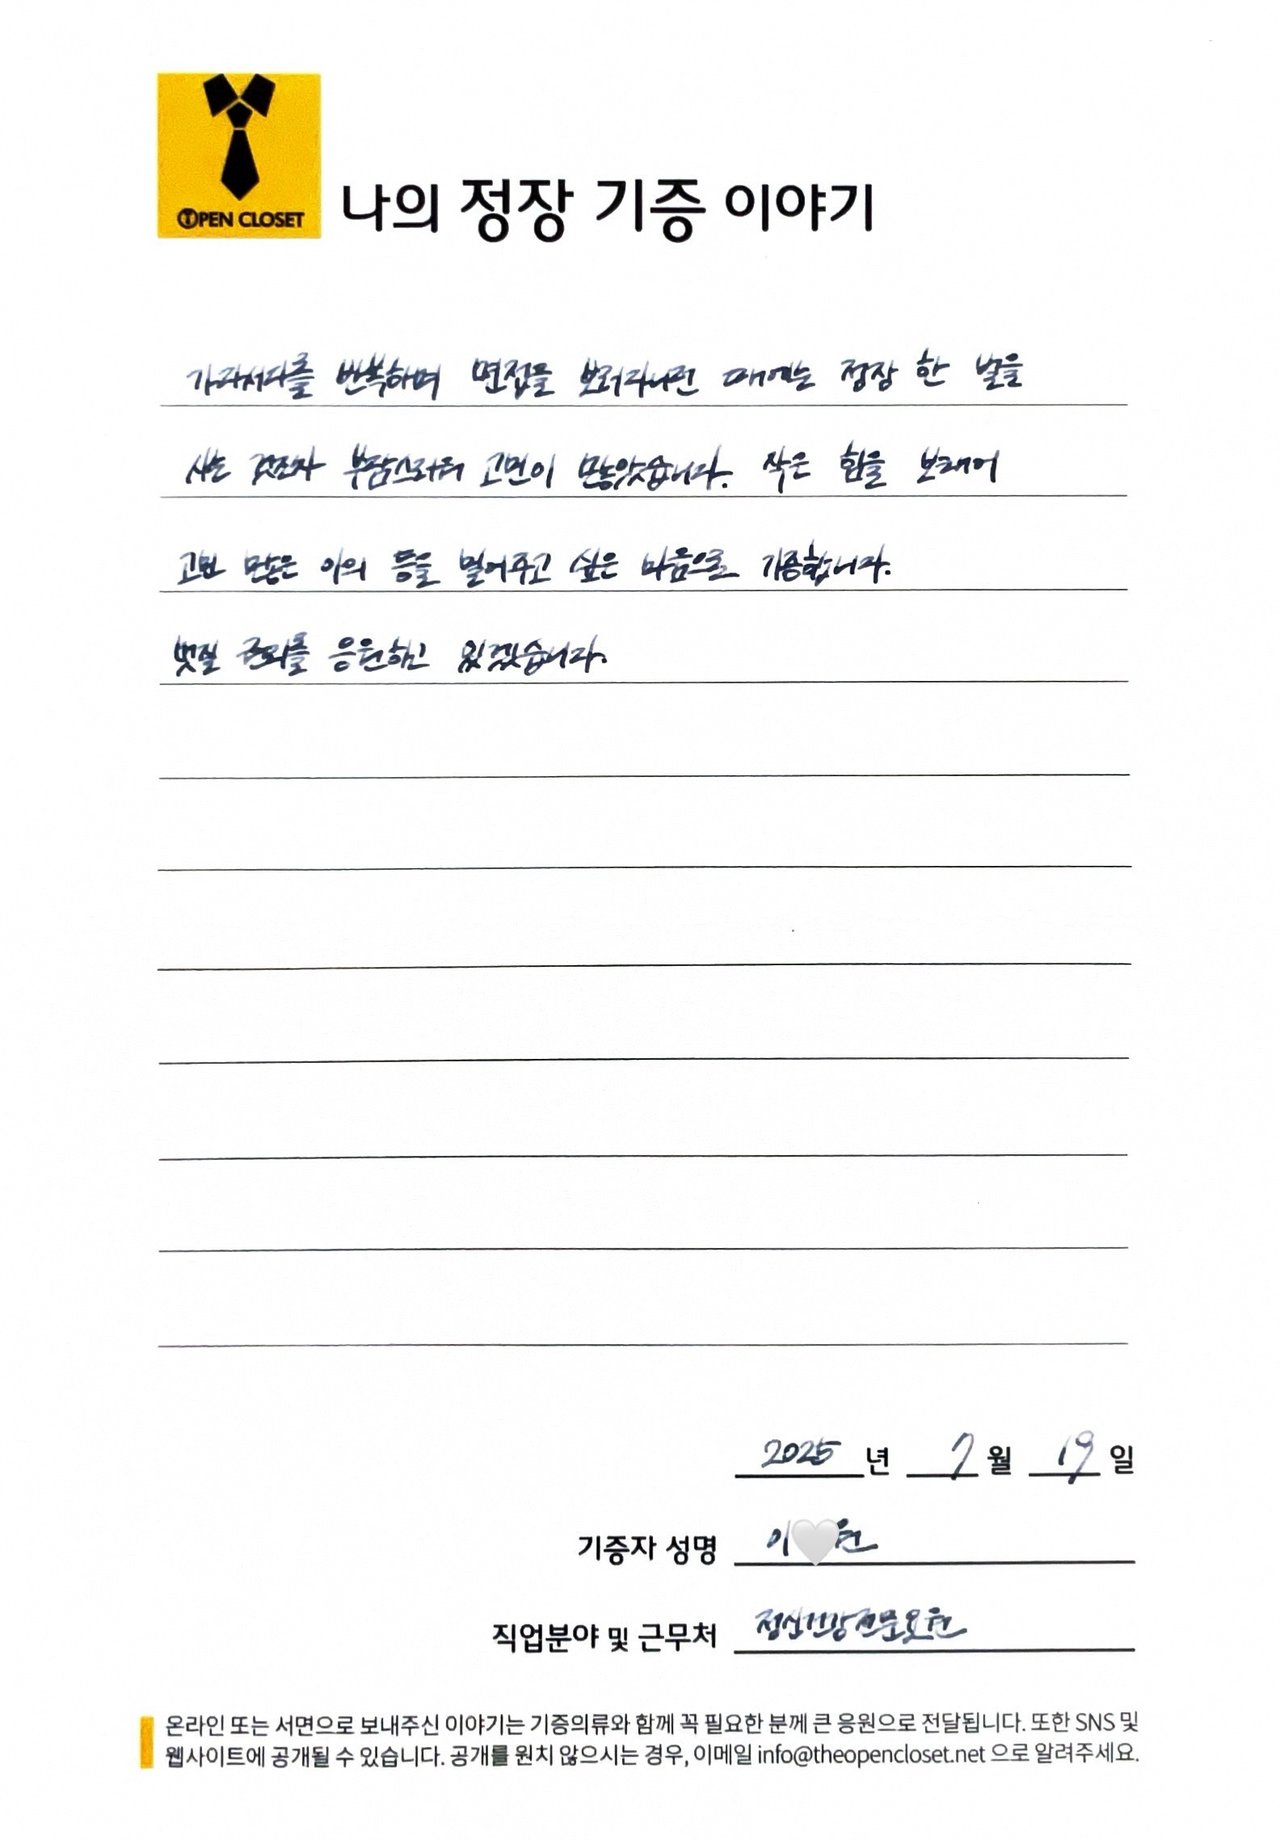 OPEN CLOSET
나의 정장 기증 이야기
가다서다를 반복하며 면접을 보러다니던 때에는 정장 한 벌을
사는 것조차 부담스러워 고민이 많았습니다. 작은 힘을 보태어
고민 많은 이의 등을 밀어주고 싶은 마음으로 기증합니다.
멋질 그대를 응원하고 있겠습니다.
2025 년 7 월 19 일
기증자 성명 이🤍원
직업분야 및 근무처 정신건강전문요원
온라인 또는 서면으로 보내주신 이야기는 기증의류와 함께 꼭 필요한 분께 큰 응원으로 전달됩니다. 또한 SNS 및
웹사이트에 공개될 수 있습니다. 공개를 원치 않으시는 경우, 이메일 info@theopencloset.net 으로 알려주세요.